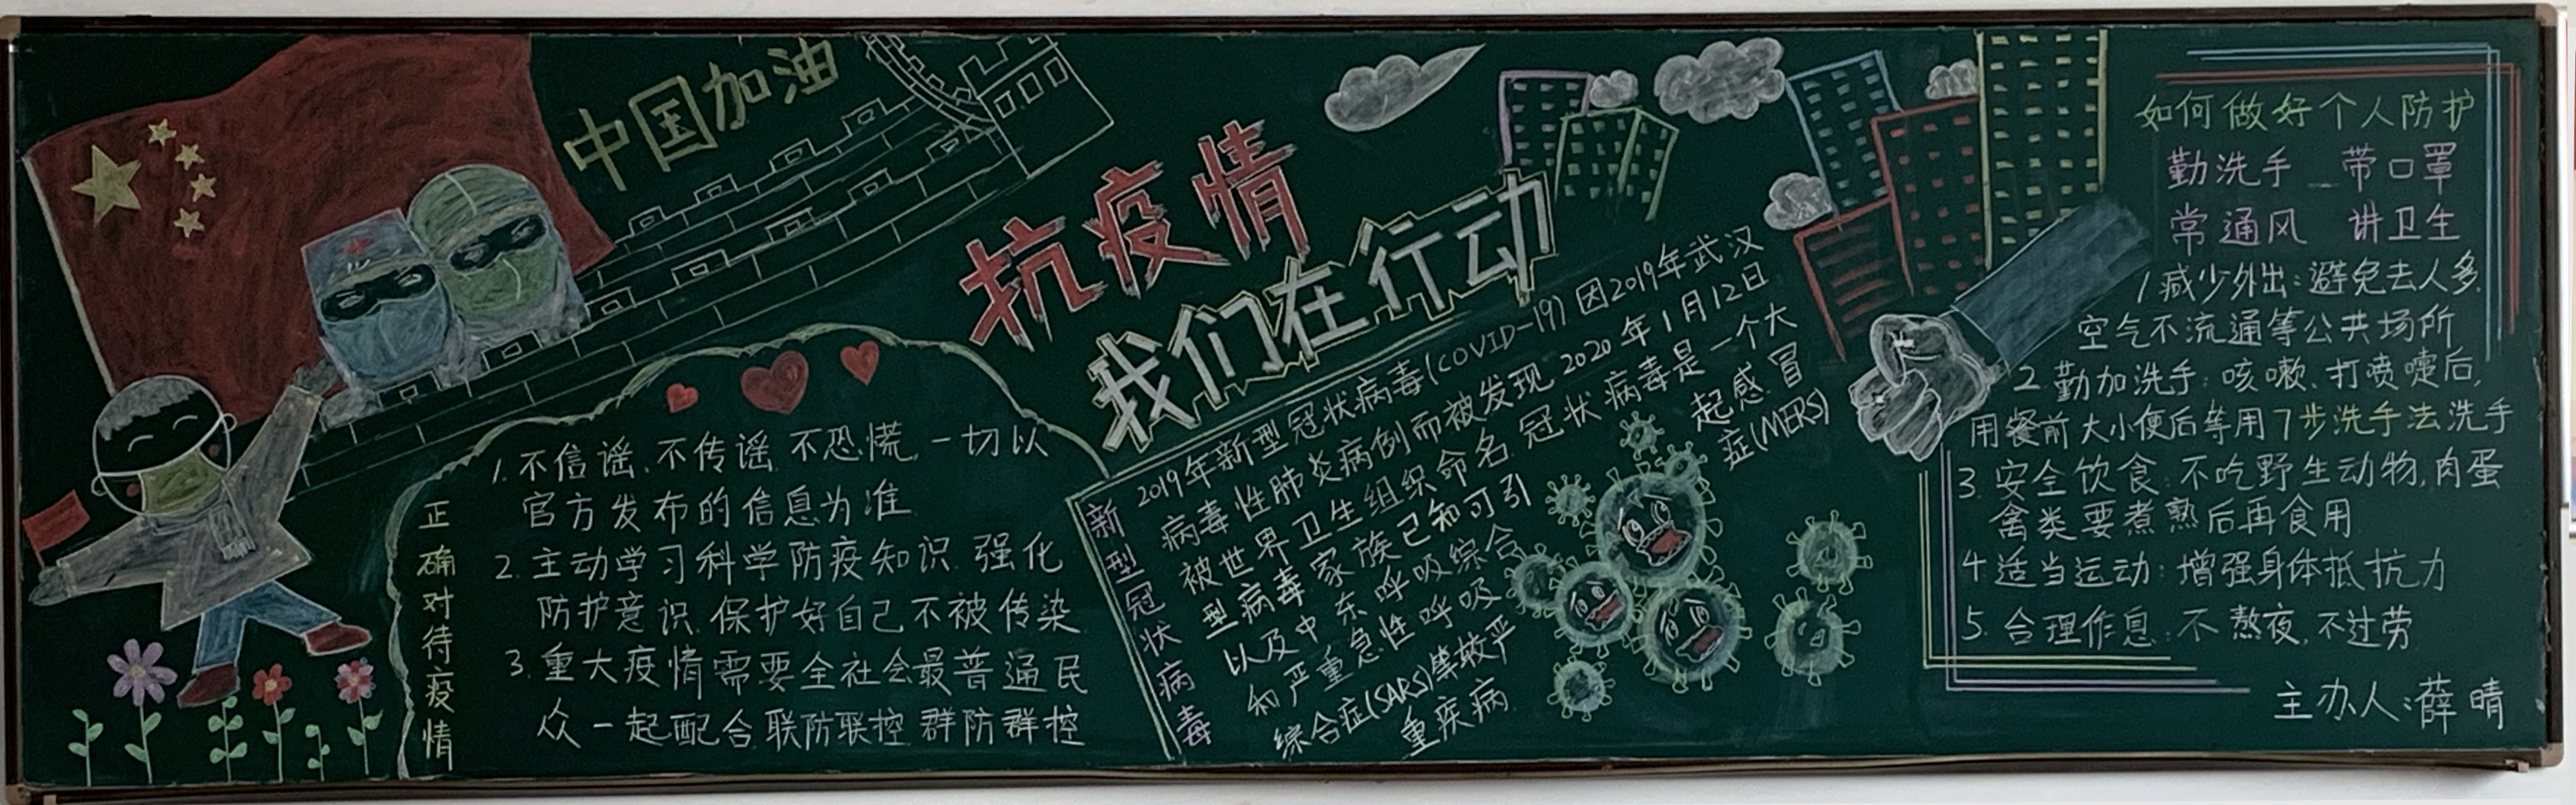 中国加油
抗疫情
我们在行动
正确对待疫情
1.不信谣、不传谣、不恐慌,一切以
官方发布的信息为准
2.主动学习科学防疫知识.强化
防护意识.保护好自己不被传染
3.重大疫情需要全社会最普通民
众一起配合联防联控群防群控
新型冠状病毒
2019年新型冠状病毒(COVID-19)因2019年武汉
病毒性肺炎病例而被发现2020年1月12日
被世界卫生组织命名 冠状病毒是一个大
型病毒家族已知可引起感冒
以及中东呼吸综合症(MERS)
和严重急性呼吸
综合症(SARS)等较严
重疾病
如何做好个人防护
勤洗手 带口罩
常通风 讲卫生
1.减少外出:避免去人多.
空气不流通等公共场所
2.勤加洗手:咳嗽、打喷嚏后,
用餐前大小便后等用7步洗手法洗手
3.安全饮食:不吃野生动物,肉蛋
禽类要煮熟后再食用
4.适当运动:增强身体抵抗力
5.合理作息:不熬夜,不过劳
主办人:薛晴